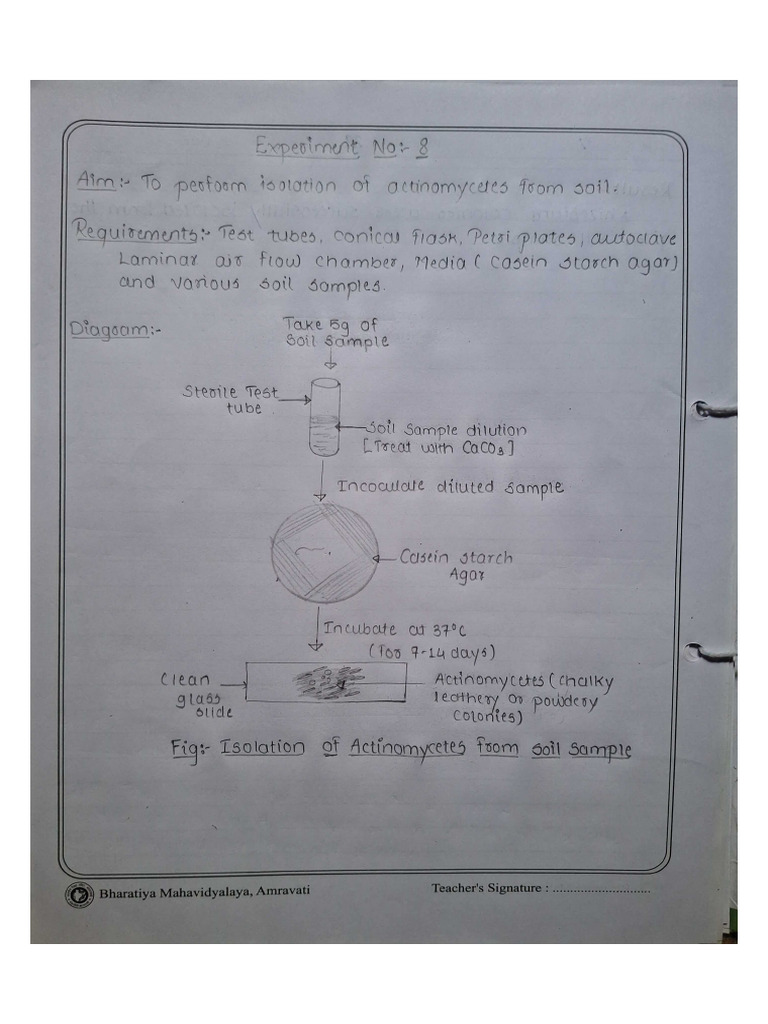 Experiment No:- 8
Aim:- To perform isolation of actinomycetes from soil.
Requirements:- Test tubes, conical flask, Petri plates, autoclave
Laminar air flow chamber, Media ( casein starch agar)
and various soil samples.
Diagram:-
Take 5g of
Soil sample
Sterile Test
tube
Soil sample dilution
[Treat with CaCO3]
Incoculate diluted sample
Casein starch
Agar
Incubate at 37°C
(For 7-14 days)
Clean
glass
slide
Actinomycetes (chalky
leathery or powdery
colonies)
Fig:- Isolation of Actinomycetes from soil sample
Bharatiya Mahavidyalaya, Amravati
Teacher's Signature : ............................